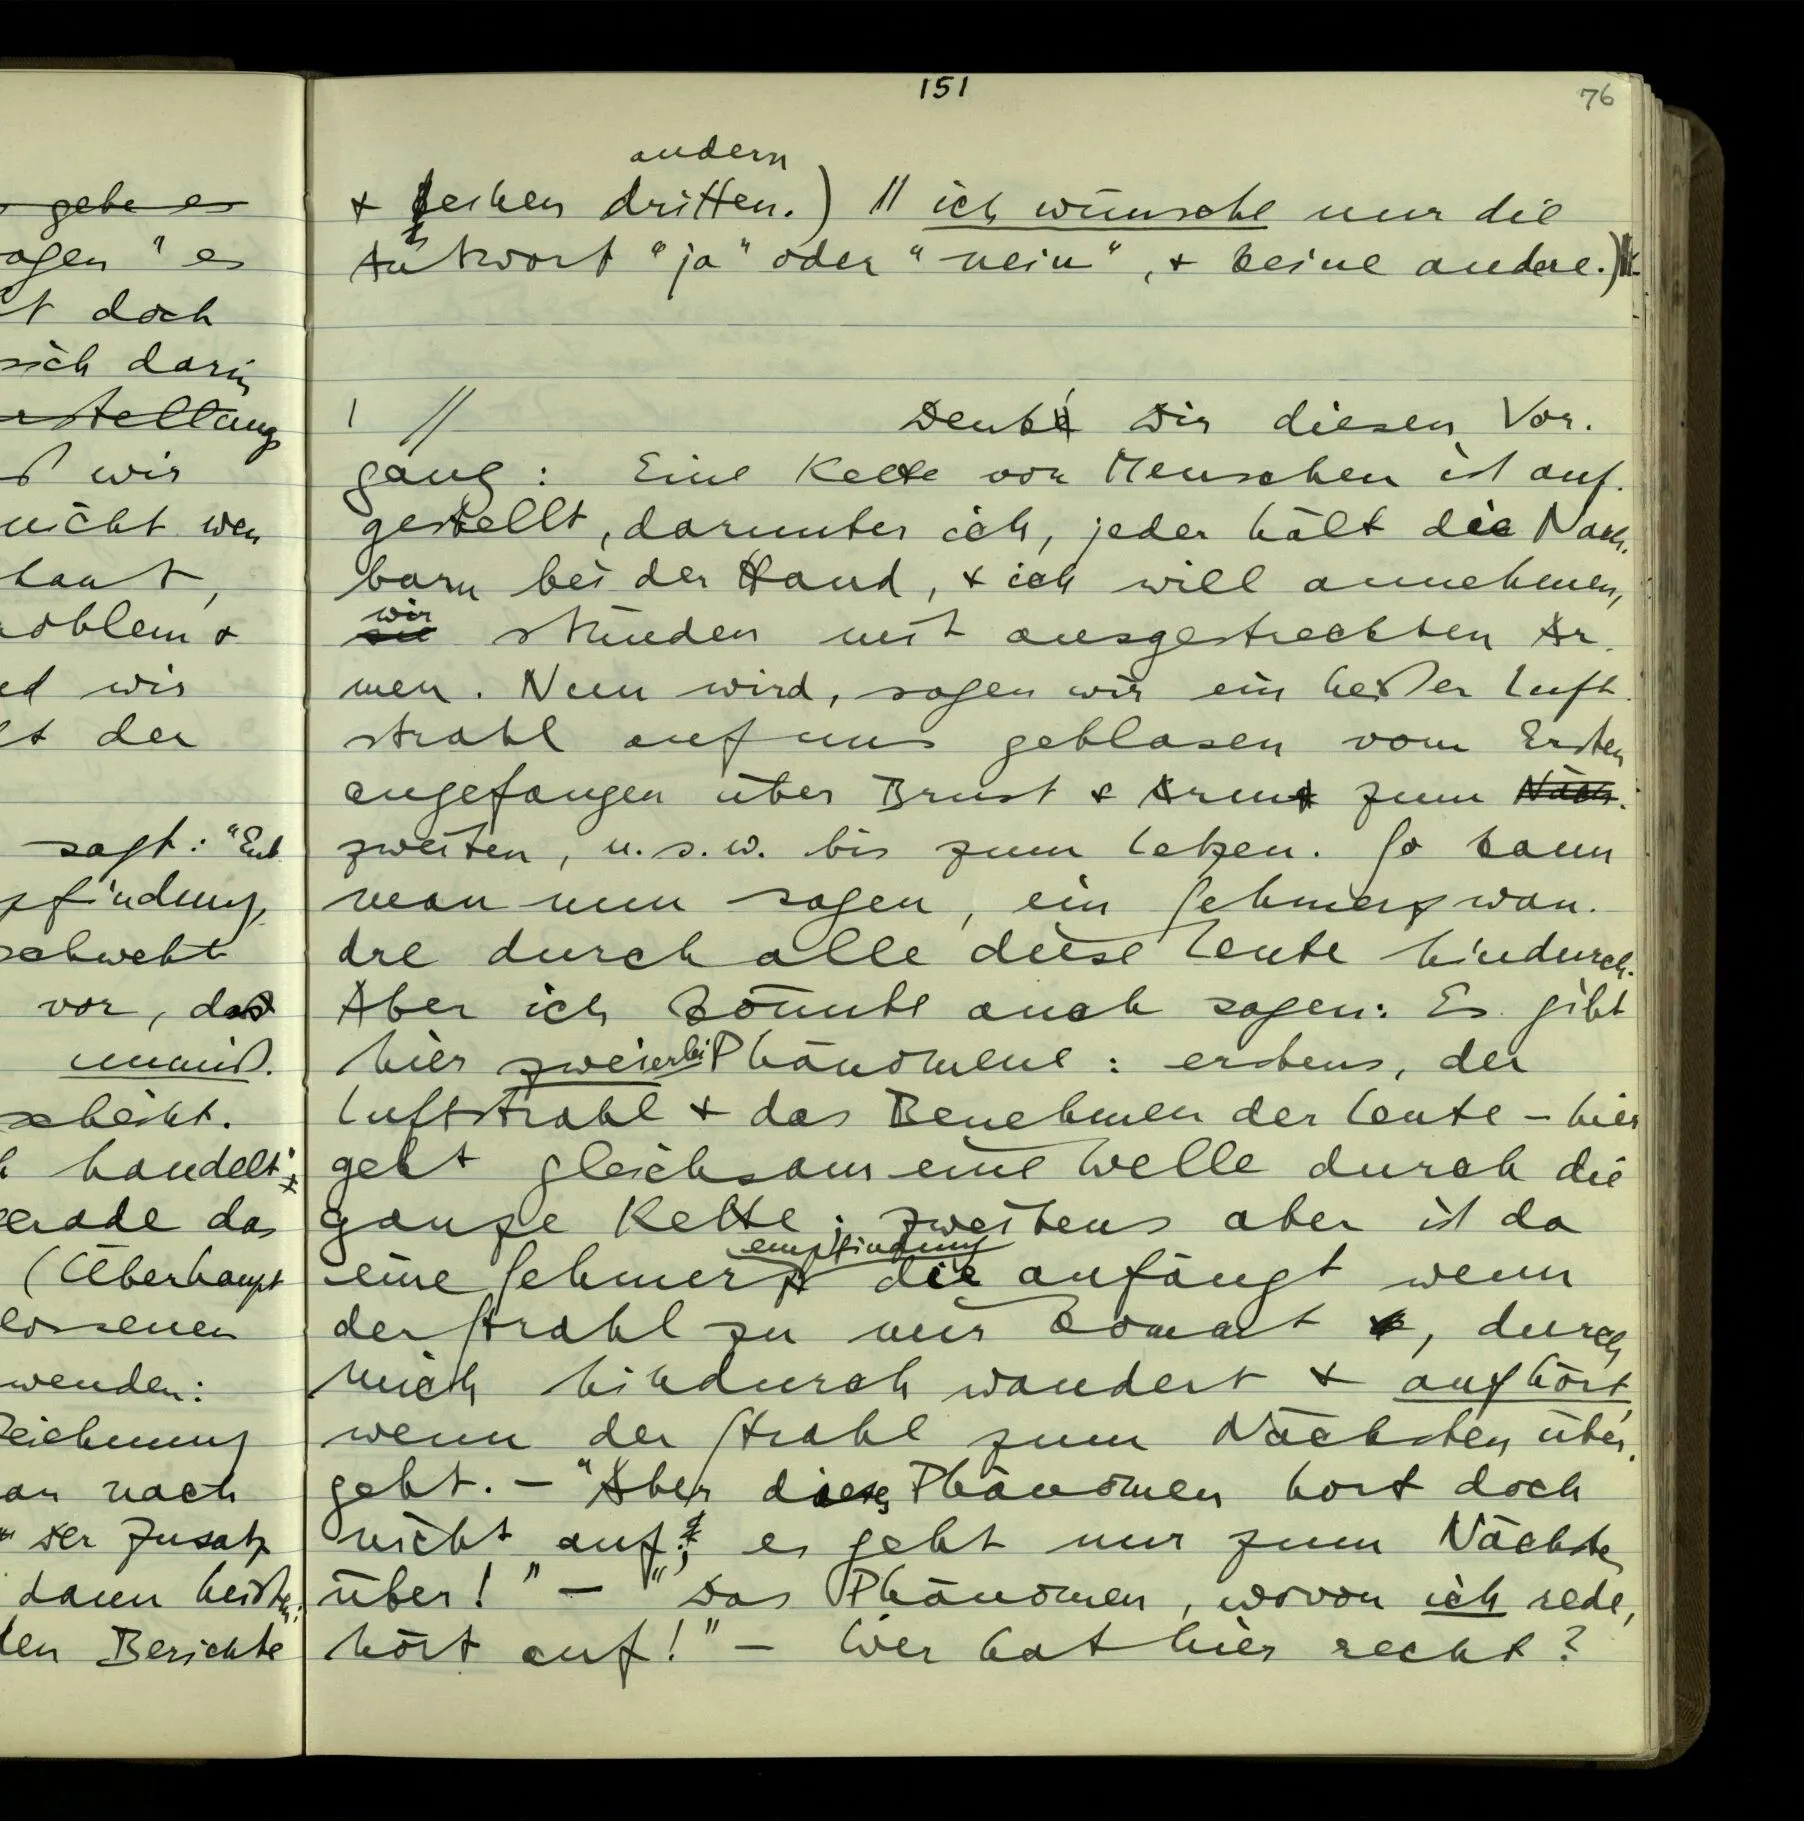 gebe es
" es
doch
sich darin
wir
nicht wen
wir
der
sagt: "Ent
schwebt
vor, daß
handelt";
gerade das
(Überhaupt
wenden:
nach
der Zusatz
dann heißen:
Berichte
151
76
andern
+ keinen dritten.) || ich wünsche nur die
Antwort "ja" oder "nein", + keine andere.)
| // Denk Dir diesen Vor-
gang: Eine Kette von Menschen ist auf-
gestellt, darunter ich, jeder hält die Nach-
barn bei der Hand, + ich will annehmen,
wir
sie stünden mit ausgestreckten Ar-
men. Nun wird, sagen wir ein heißer Luft-
strahl auf uns geblasen vom Ersten
angefangen über Brust + Arme zum Näch-
zweiten, u.s.w. bis zum letzen. So kann
man nun sagen, ein Schmerz wan-
dre durch alle diese Leute hindurch.
Aber ich könnte auch sagen: Es gibt
hier zweierlei Phänomene: erstens, der
Luftstrahl + das Benehmen der Leute – hier
geht gleichsam eine Welle durch die
ganze Kette; zweitens aber ist da
empfindung
eine Schmerz die anfängt wenn
der Strahl zu mir kommt, durch
mich hindurch wandert + aufhört,
wenn der Strahl zum Nächsten über-
geht. – "Aber dieses Phänomen hört doch
nicht auf; es geht nur zum Nächsten
über!" – "Das Phänomen, wovon ich rede,
hört auf!" – Wer hat hier recht?